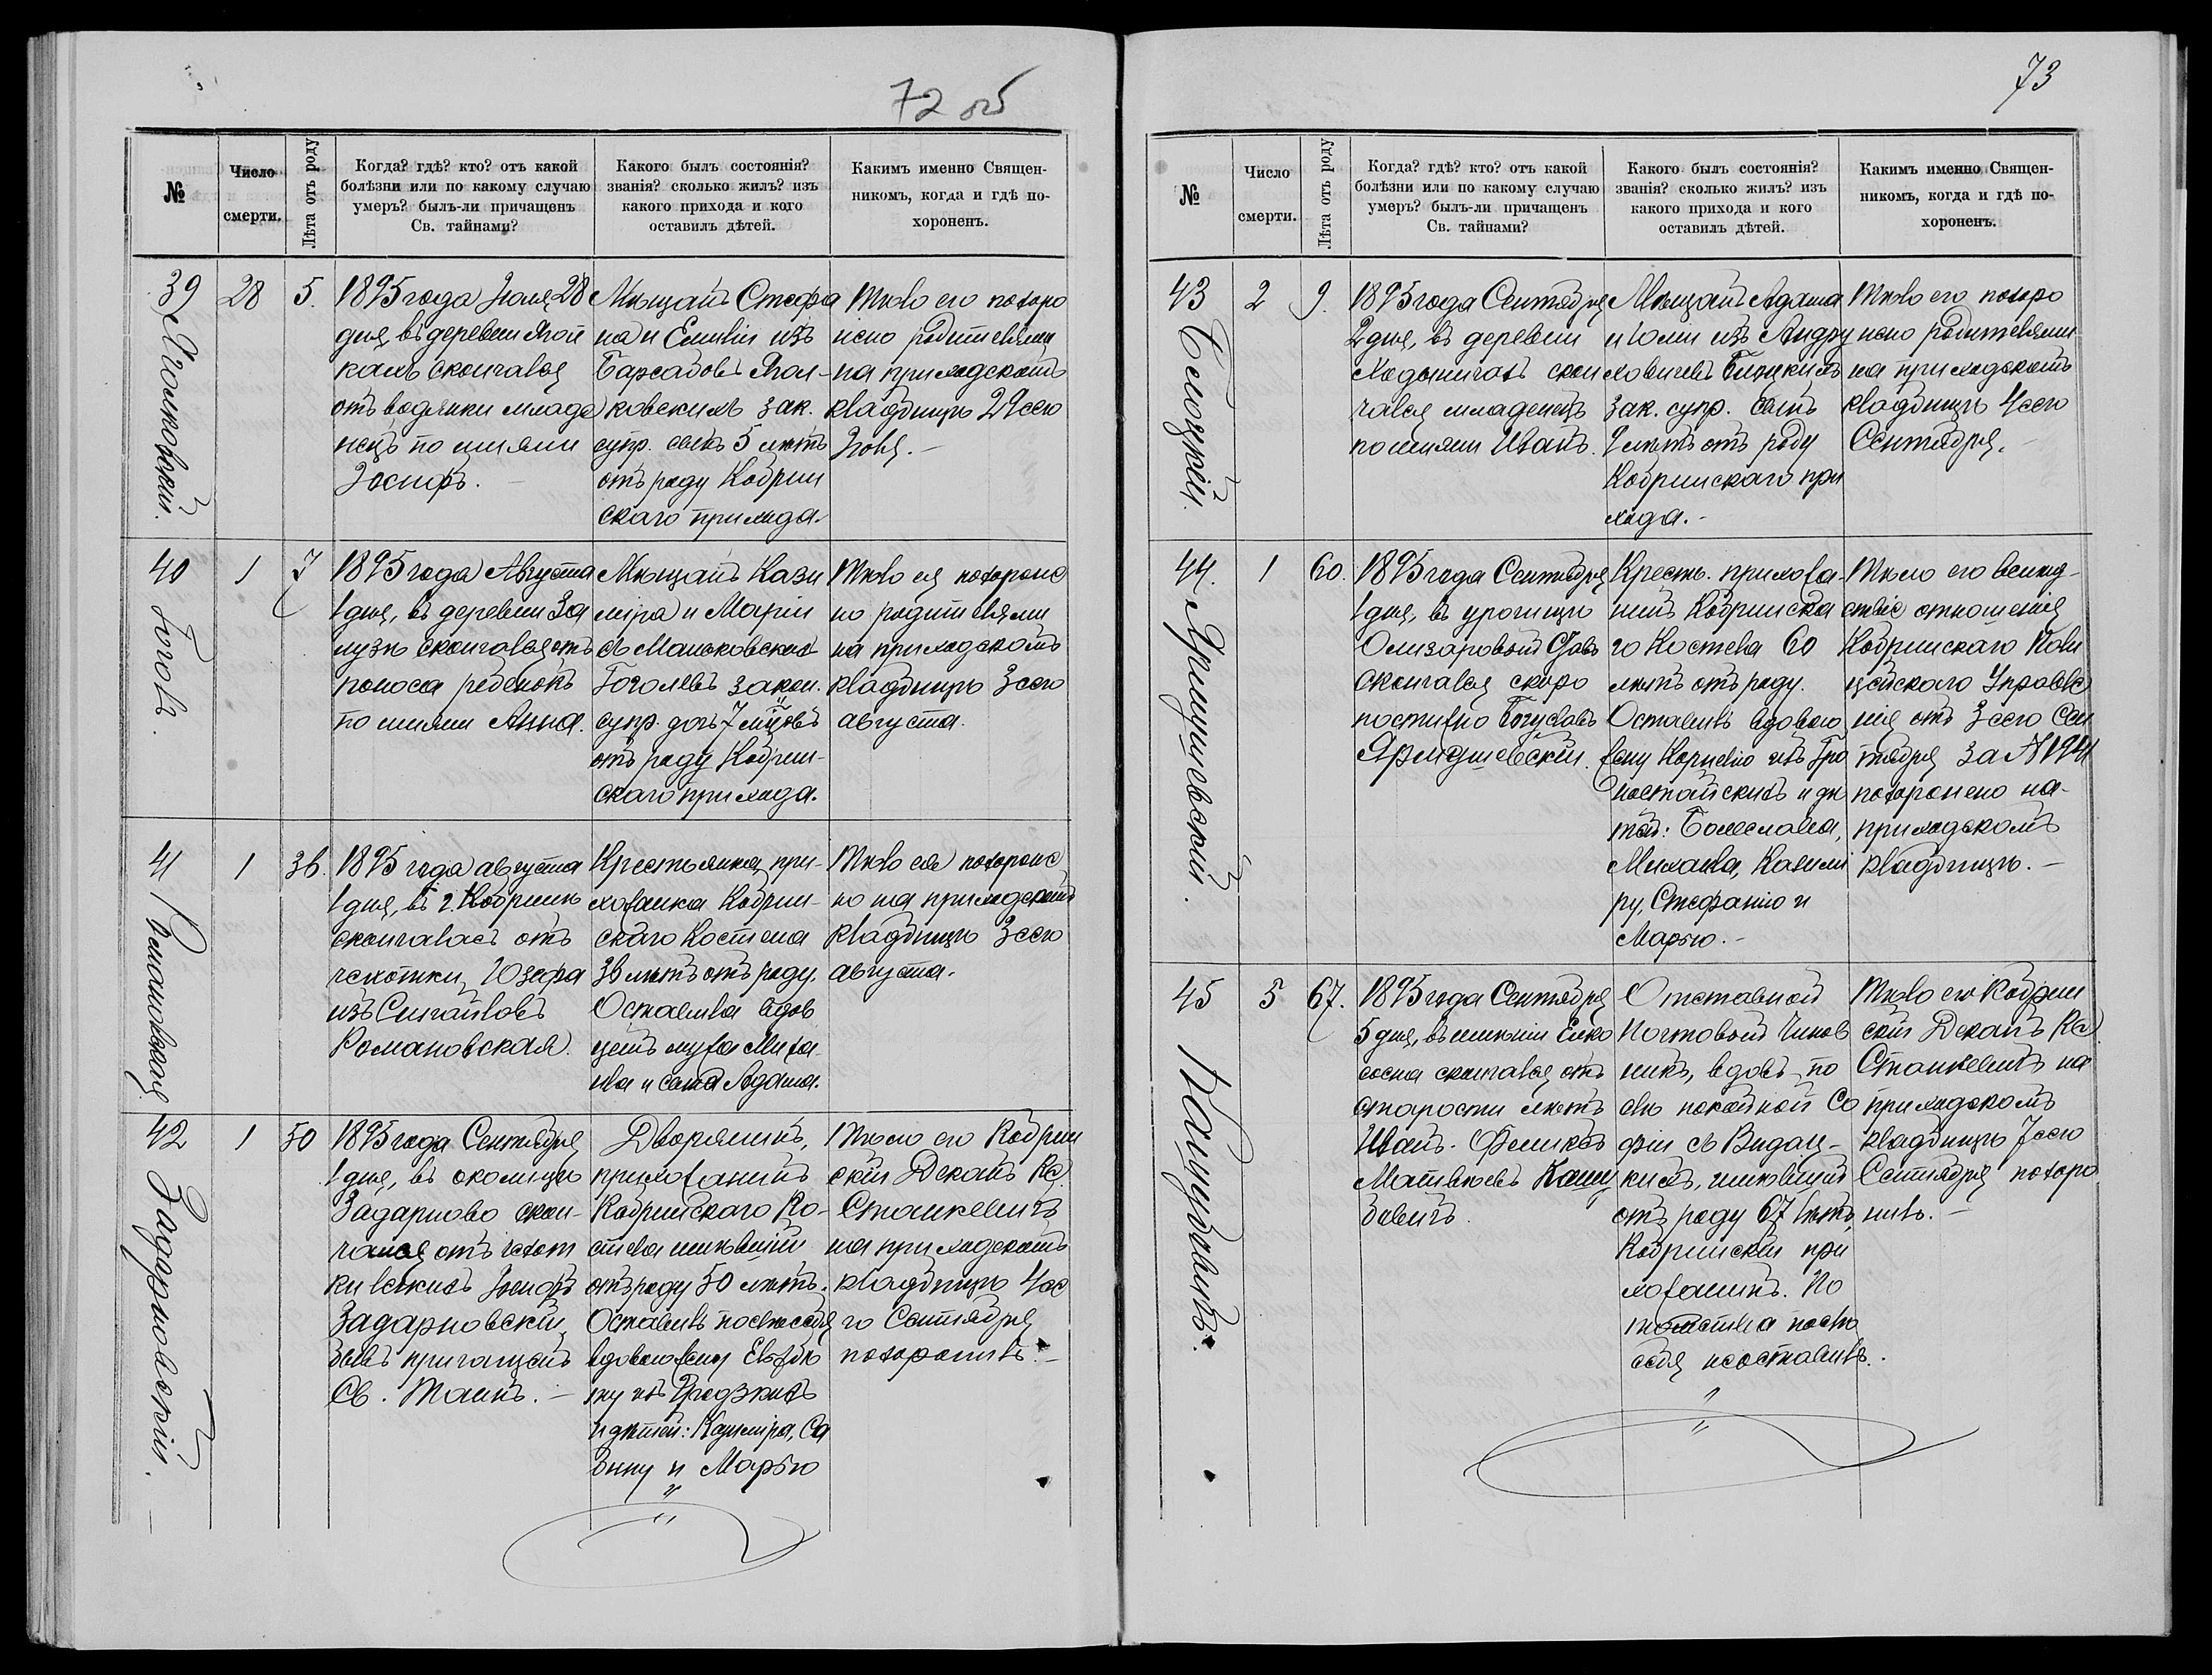 72 об
№
Число
смерти.
Лѣта отъ роду
Когда? гдѣ? кто? отъ какой
болѣзни или по какому случаю
умеръ? былъ-ли причащенъ
Св. тайнами?
Какого былъ состоянія?
званія? сколько жилъ? изъ
какого прихода и кого
оставилъ дѣтей.
Какимъ именно Священ-
никомъ, когда и гдѣ по-
хороненъ.
39
28
5.
1895 года Іюля 28
дня, въ деревни
скончался
отъ водянки младе
нецъ по имени
Іосифъ.
Мѣщанъ Стефа
на и Емиліи изъ
зак.
супр. сынъ 5 лѣтъ
отъ роду Кобрин
скаго прихода.
Тѣло его похоро
нено родителями
на приходскомъ
кладбищѣ 29 сего
Іюля.
40
Гоголь.
1
7
1895 года Августа
1 дня, въ деревни За
лузѣ скончался отъ
поноса ребенокъ
по имени Анна.
Мѣщанъ Кази
міра и Маріи
съ Маньковскихъ
Гоголевъ закон.
супр. дочь 7 мѣс.
отъ роду Кобрин-
скаго прихода.
Тѣло ея похороне
но родителями
на приходскомъ
кладбищѣ 3 сего
августа.
41
Романовская
1
36.
1895 года августа
1 дня, въ г. Кобринѣ
скончалась отъ
чахотки, Юзефа
изъ
Романовская.
Крестьянка, при-
хожанка Кобрин-
скаго Костела
36 лѣтъ отъ роду.
Оставила вдов
цемъ мужа Миха
ила и сына Адама.
Тѣло ея похороне
но на приходскомъ
кладбищѣ 3 сего
августа.
42
Задарновскій.
1
50
1895 года Сентября
1 дня, въ околицѣ
Задарново скон-
чался отъ чахот
ки Іосифъ
Задарновскій,
бывъ причащенъ
Св. Таинъ.
Дворянинъ,
прихожанинъ
Кобринскаго Ко-
стела имѣвшій
отъ роду 50 лѣтъ.
Оставивъ послѣ себя
вдовою жену
изъ Гродзкихъ
и дѣтей: Казиміра, Са
бину и Марью
Тѣло его Кобрин
скій Деканъ Кс.
Станкевичъ
на приходскомъ
кладбищѣ 4 се
го Сентября
похоронилъ.
73
№
Число
смерти.
Лѣта отъ роду
Когда? гдѣ? кто? отъ какой
болѣзни или по какому случаю
умеръ? былъ-ли причащенъ
Св. тайнами?
Какого былъ состоянія?
званія? сколько жилъ? изъ
какого прихода и кого
оставилъ дѣтей.
Какимъ именно Священ-
никомъ, когда и гдѣ по-
хороненъ.
43
2
9.
1895 года Сентября
2 дня, въ деревни
скон
чался младенецъ
по имени Иванъ.
Мѣщанъ Адама
и Юліи изъ Андру
ховичевъ
зак. супр. сынъ
9 лѣтъ отъ роду
Кобринскаго при
хода.
Тѣло его похоро
нено родителями
на приходскомъ
кладбищѣ 4 сего
Сентября.
44.
Ярмушевскій.
1
60.
1895 года Сентября
1 дня, въ урочищѣ
Олизаровый Ставъ
скончался скоро
постижно Богуславъ
Ярмушевскій.
Крест. прихожа-
нинъ Кобринска
го Костела 60
лѣтъ отъ роду.
Оставивъ вдовою
жену Корнелію изъ Гро
ностайскихъ и дѣ
тей: Болеслава,
Михаила, Казими
ру, Стефанію и
Марью.
Тѣло его вслѣд-
ствіе отношенія
Кобринскаго Поли
цейскаго Управле
нія отъ 3 сего Сен
тября за №
похоронено на
приходскомъ
кладбищѣ.
45
Кашубовичъ.
5
67.
1895 года Сентября
5 дня, въ имѣніи
скончался отъ
старости лѣтъ
Иванъ-Феликсъ
Матвѣевъ Кашу
бовичъ.
Отставной
Почтовый Чинов
никъ, вдовъ по
покойной Со
фіи съ
имѣвшій
отъ роду 67 лѣтъ,
Кобринскій при
хожанинъ. По
томства послѣ
себя неоставилъ.
Тѣло его Кобрин
скій Деканъ Кс
Станкевичъ на
приходскомъ
кладбищѣ 7 сего
Сентября похоро
нилъ.